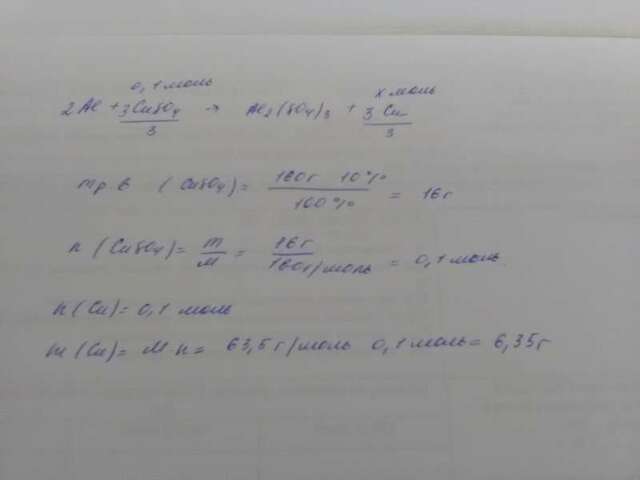 0,1 моль x моль
2Al + 3CuSO4 → Al2(SO4)3 + 3Cu
3 3
mр.в (CuSO4) = 160г 10%
100% = 16г
n (CuSO4) = m
M = 16г
160г/моль = 0,1 моль
n(Cu) = 0,1 моль
m(Cu) = M·n = 63,5 г/моль 0,1 моль = 6,35г